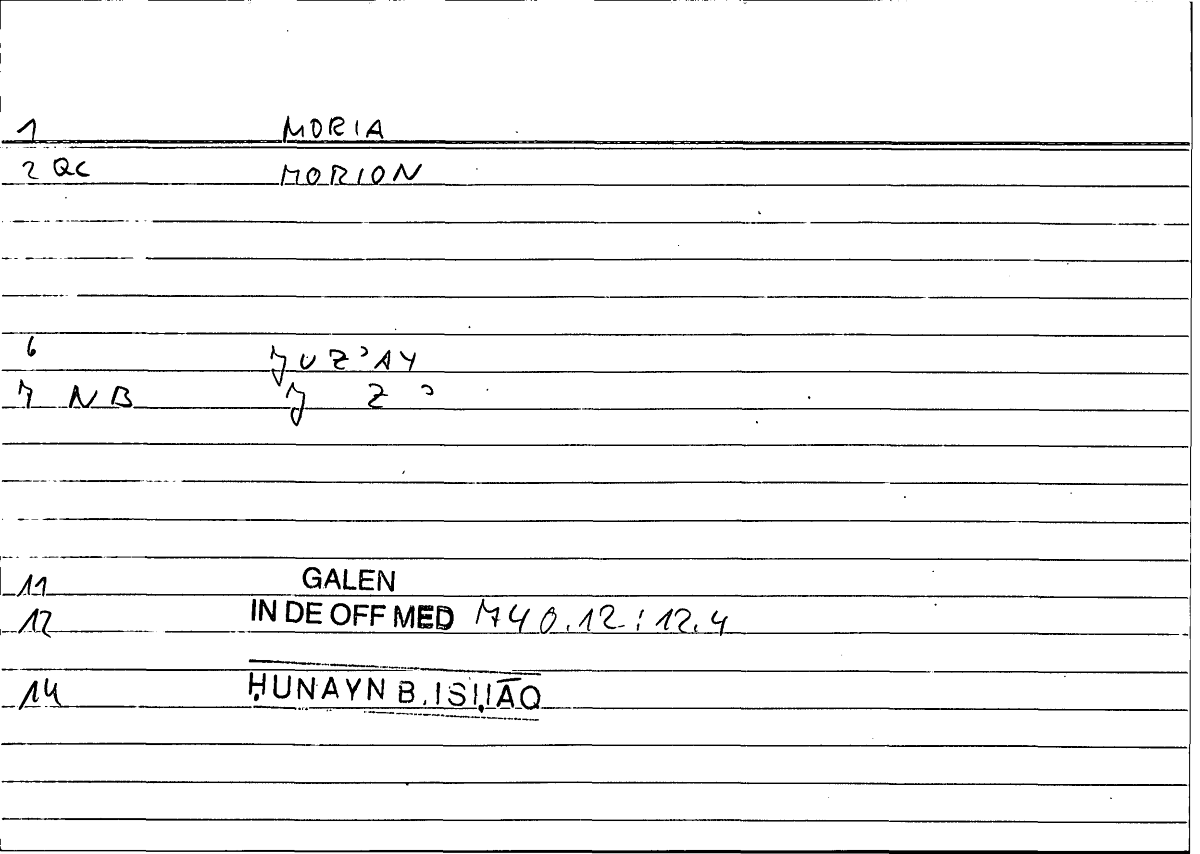 1 MORIA
2 QC MORION
6 JUZʾAY
7 NB J Z ʾ
11 GALEN
12 IN DE OFF MED 740.12 : 12.4
14 ḤUNAYN B. ISḤĀQ